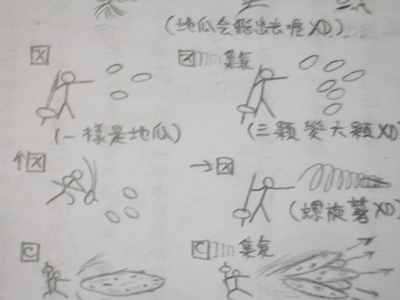 (地瓜会飛出去喔XD)
X
X 集氣
(一樣是地瓜)
(三顆變大顆XD)
↑X
→X
(螺旋薯XD)
C
C 集氣